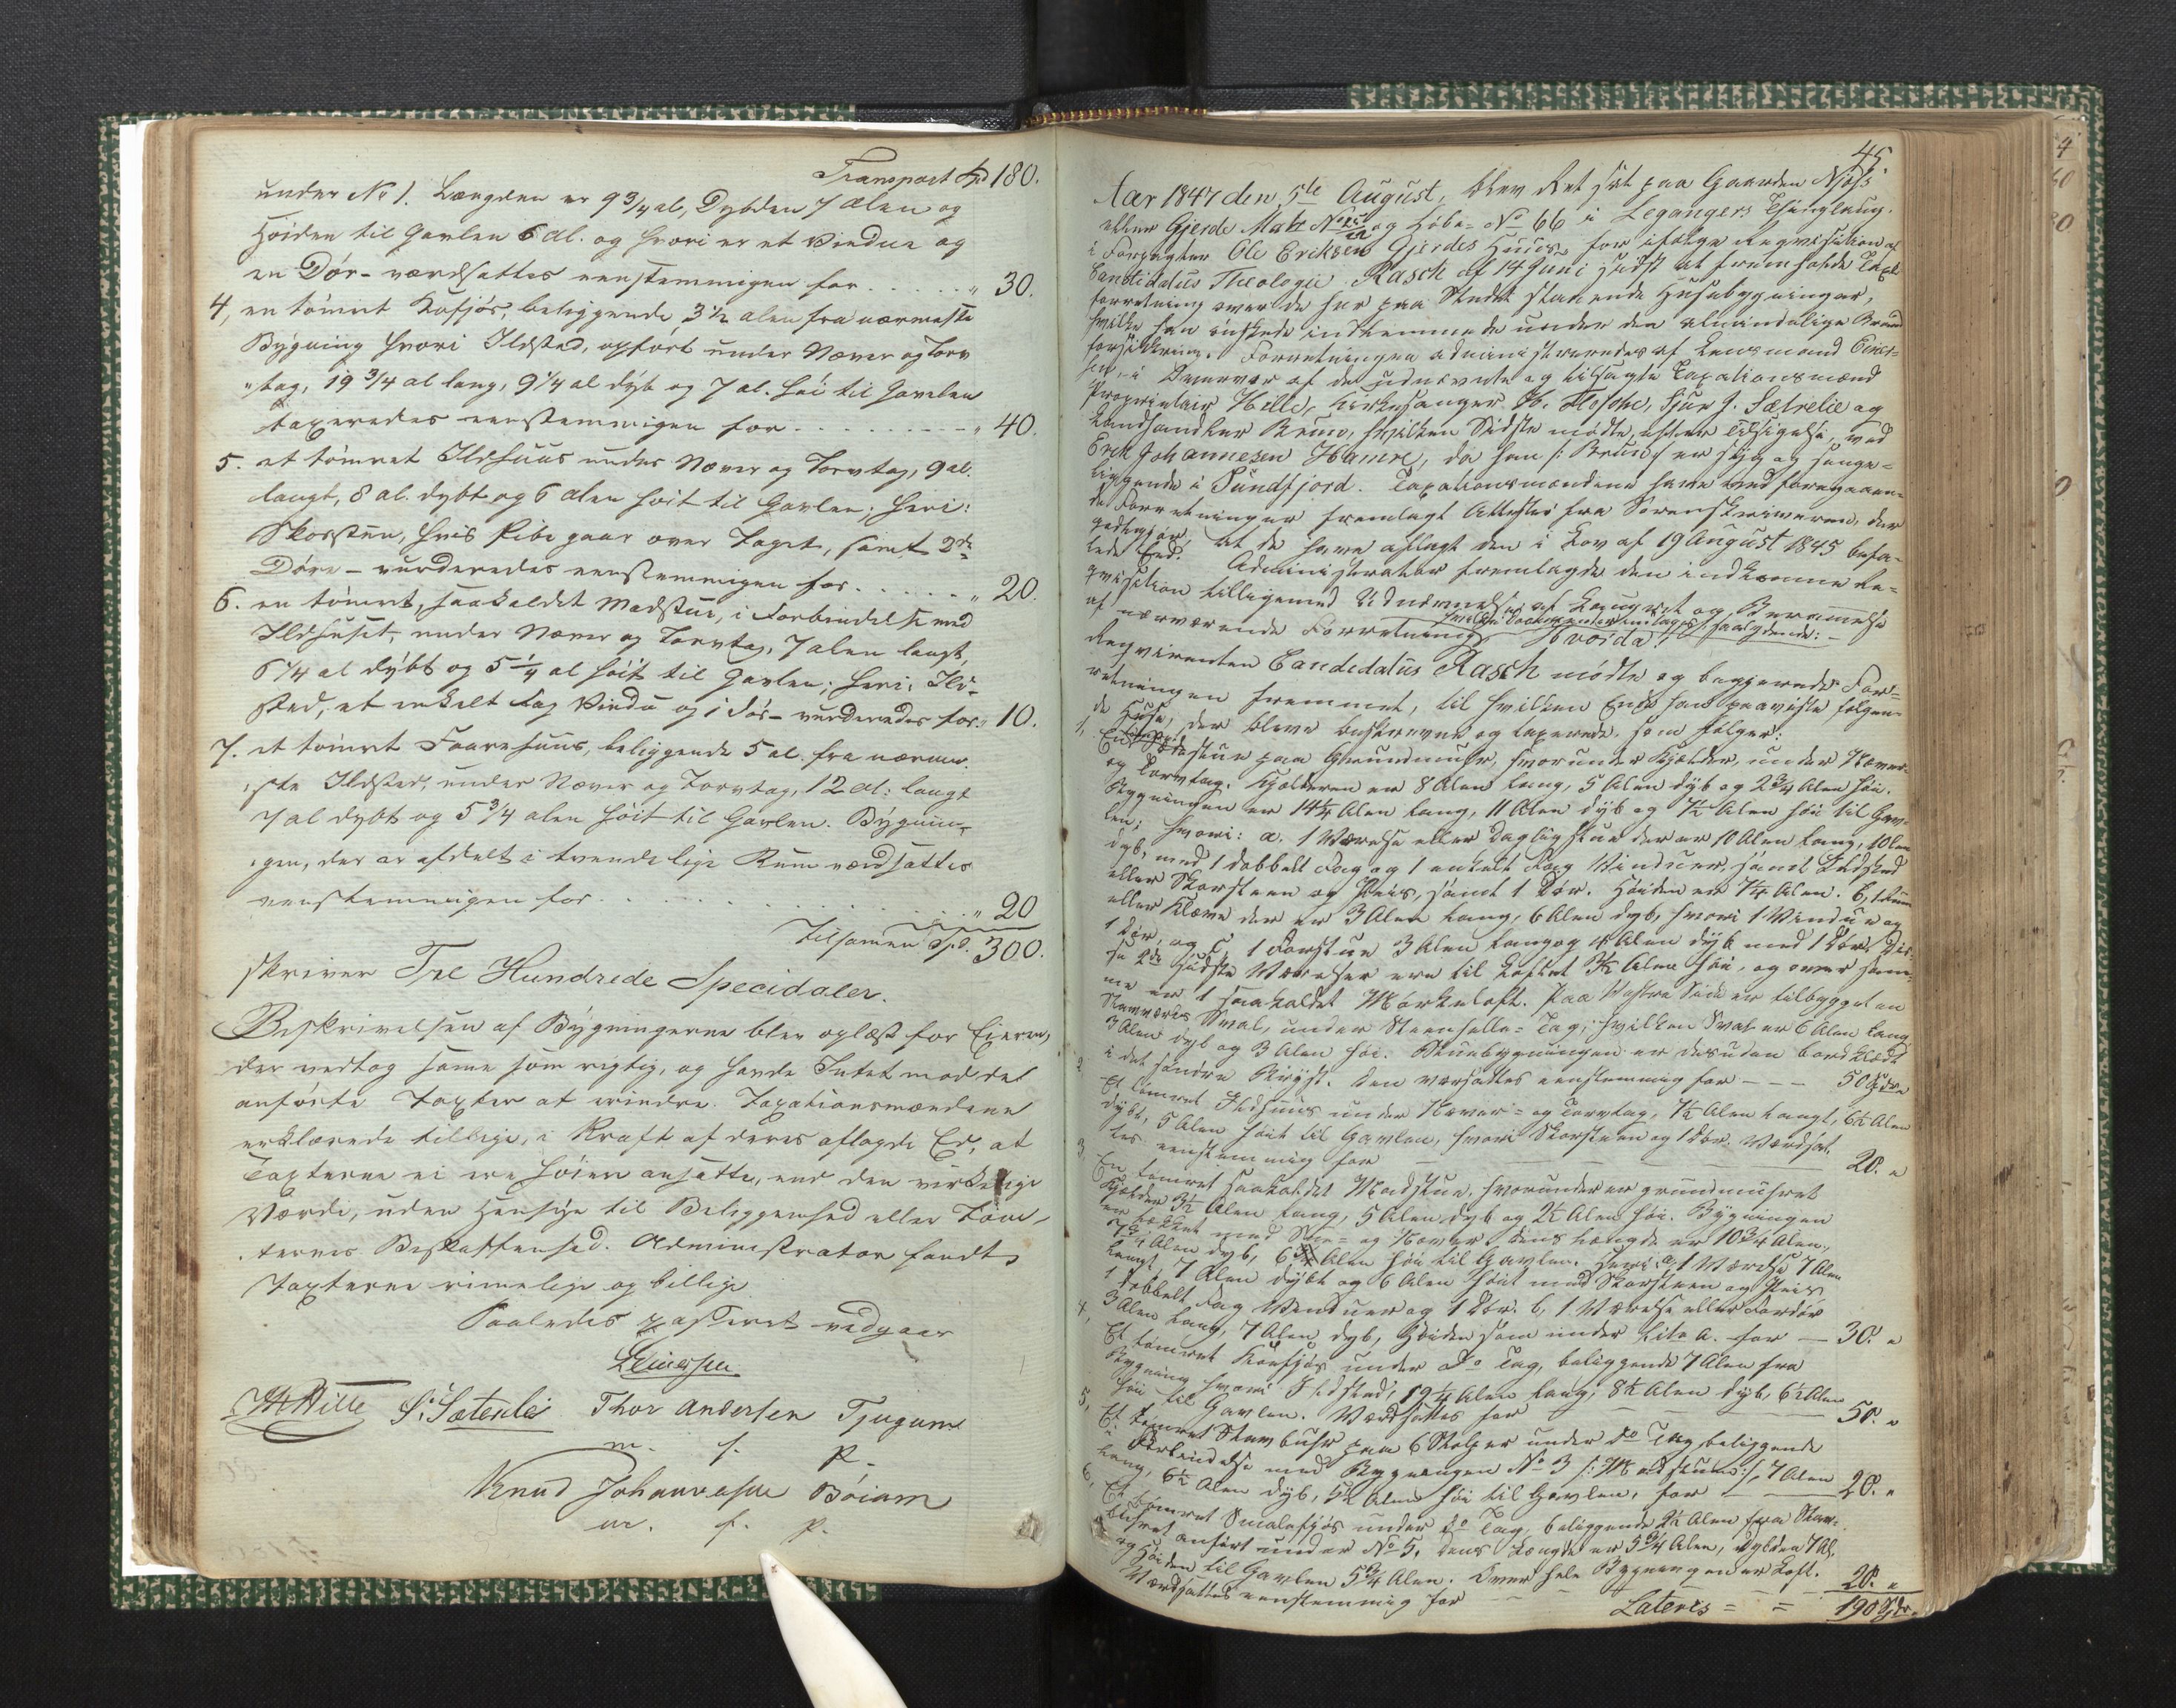 Transport Spd 180.
under No 1. Længden er 9 3/4 al, Dybden 7 Alen og
Høiden til Gavlen 6 Al. og hvori er et Vindue og
en Dør - værdsattes eenstemmigen for . . . . . " 30.
4, en tømret Kufjøs, beliggende 3 1/2 alen fra nærmeste
Bygning hvori Ildsted, opført under Næver og Torv
"tag, 19 3/4 al lang, 9 1/4 al dyb og 7 al. høi til Gavelen
taxeredes eenstemmigen for . . . . . . . " 40.
5. et tømret Ildhuus under Næver og Torvtag, 9 al.
langt, 8 al. dybt og 6 alen høit til Gavlen; heri:
Skorsteen, hvis Pibe gaar over Taget, samt 2de
Døre - vurderedes eenstemmigen for . . . . . " 20.
6. en tømret, saakaldet Madstue, i Forbindelse med
Ildhuset, under Næver og Torvtag, 7 alen langt,
6 1/4 al dybt og 5 1/4 al høit til Gavlen; heri: Ild-
sted, et enkelt Fag Vindu og 1 Dør - vurderedes for " 10.
7. et tømret Faarehuus, beliggende 5 al. fra nærme-
ste Ildsted, under Næver og Torvtag, 12 Al: langt
7 al dybt og 5 3/4 alen høit til Gavlen. Bygnin-
gen, der er afdelt i tvende lige Rum værdsattes
eenstemmigen for . . . . . . . . . . " 20
Tilsamen Spd. 300.
skriver Tre Hundrede Specidaler.
Beskrivelsen af Bygningerne blev oplæst for Eieren,
der vedtog samme som rigtig, og havde Intet mod de
anførte Taxter at erindre. Taxationsmændene
erklærede tillige, i Kraft af deres aflagde Ed, at
Taxterne ei ere høiere ansatte, end den virkelige
Værdi, uden Hensyn til Beliggenhed eller Tom-
ternes Beskaffenhed. Administrator fandt
Taxterne rimelige og billige
Saaledes passeret vedgaar
Leinessen
Hille S. J. Sætrelie Thor Andersen Tjugum
m. f. P.
Knud Johannesen Bøium
m. f. p.
45
Aar 1847 den 5te August, blev Ret sat paa Gaarden Njøs
eller Gjerde Matr No og Løbe- No 66 i Legangers Thinglaug.
i Forpagter Ole Eriksen Gjerdes Huus, for ifølge Reqvisition af
Candidatus Theologie Rasch af 14 Juni sidst at fremholde Taxt
forretning over de her paa Stedet staaende Husebygninger,
hvilke han ønskede indlemmede under den almindelige Brand
forsikkring. Forretningen administreredes af Lensmand Einer-
sen, i Overvær af de udnævnte og tilsagte Taxationsmænd
Proprietair Hille, Kirkesanger Flohve, Sjur J. Sætrelie og
Landhandler Bruun, hvilken Sidste mødte, efter Tilsigelse, ved
Erik Johannesen Hamre, da han /: Bruun :/ er syg og senge-
liggende i Sundfjord. Taxationsmændene have ved foregaaen-
de Forretninger fremlagt Attester fra Sorenskriveren, der
godtgjør, at de have aflagt den i Lov af 19 August 1845 befa-
lede Eed. Administrator fremlagde den indkomne Re-
qvisition tilligemed Udnævnelse af Lauget og Berammelse
hvilke Documenter indtages saalydende: -
af nærværende Forretning
Reqvirenten Candidatus Rasch mødte og begjerede For-
retningen fremmet, til hvilken Ende han paaviste følgen-
de Huse, der bleve beskrevne og taxerede som følger:
1, En stue paa Grundmuur, hvorunder Kjelder, under Næver-
og Torvtag. Kjelderen er 8 Alen lang, 5 Alen dyb og 2 3/4 Alen høi.
Bygningen er 14 1/2 Alen lang, 11 Alen dyb og 7 1/2 Alen høi til Gav-
len; hvori: a. 1 Værelse eller Dagligstue der er 10 Alen lang, 10 Alen
dyb, med 1 dobbelt Fag og 1 enkelt Fag Vinduer, samt Ildsted
eller Skorsteen og Peis, samt 1 Dør. Høiden er 7 1/4 Alen. b, 1 Rum
eller Kleve der er 3 Alen lang, 6 Alen dyb, hvori 1 Vindue og
1 Dør, og c, 1 Forstue 3 Alen lang og 4 Alen dyb med 1 Dør. Dis-
se 2de sidste Værelser ere til Loftet 3 1/2 Alen høi, og over sam-
me er 1 saakaldet Mørkeloft. Paa Vestre Side er tilbygget en
Stavværks Sval, under Steenhelle-Tag; hvilken Sval er 6 Alen lang
3 Alen dyb og 3 Alen høi. Stuebygningen er desuden bordklædt
i det søndre Bryst. Den værdsattes eenstemmig for - - - 50 Spd
2, Et tømret Ildhuus under Næver- og Torvtag, 7 1/2 Alen langt, 6 1/2 Alen
dybt, 5 Alen høit til Gavlen, hvori Skorsteen og 1 Dør. Værdsat-
tes eenstemmig for 20. "
3, En tømret saakaldet Madstue, hvorunder er grundmuuret
Kjelder 3 1/2 Alen lang, 5 Alen dyb og 2 1/2 Alen høi. Bygningen
er tækket med Steen- og Næver, dens Længde er 10 3/4 Alen,
7 1/4 Alen dyb, 6 Alen høi til Gavlen. Heri: a, 1 Værelse 7 Alen
langt, 7 Alen dybt og 6 Alen høit med Skorsteen og Peis
1 dobbelt Fag Vinduer og 1 Dør. b, 1 Værelse eller Fordør
3 Alen lang, 7 Alen dyb, Høiden som under Litr a. for - 30. "
4, Et tømret Koefjøs under do Tag, beliggende 7 Alen fra
Bygning hvori Ildsted, 19 1/4 Alen lang, 8 1/2 Alen dyb, 6 1/2 Alen
høi til Gavlen. Værdsattes for 50. "
5, Et tømret Stavbuhr paa 6 Stolper under do Tag beliggende
i Forbindelse med Bygningen No 3 /: Madstuen :/, 7 Alen
lang, 6 1/2 Alen dyb, 5 1/2 Alen høi til Gavlen, for 20. "
6, Et tømret Smalefjøs under do Tag, beliggende 2 1/2 Alen fra Stav-
buhret anført under No 5, dens Længde er 5 3/4 Alen, Dybden 7 Al.
og Høiden til Gavlen 5 3/4 Alen. Over hele Bygningen er Loft.
Værdsattes eenstemmig for 20. "
Lateris = = 190 Spd.